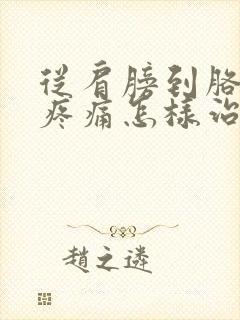 從肩膀到胳
疼痛怎樣治
趙之遴